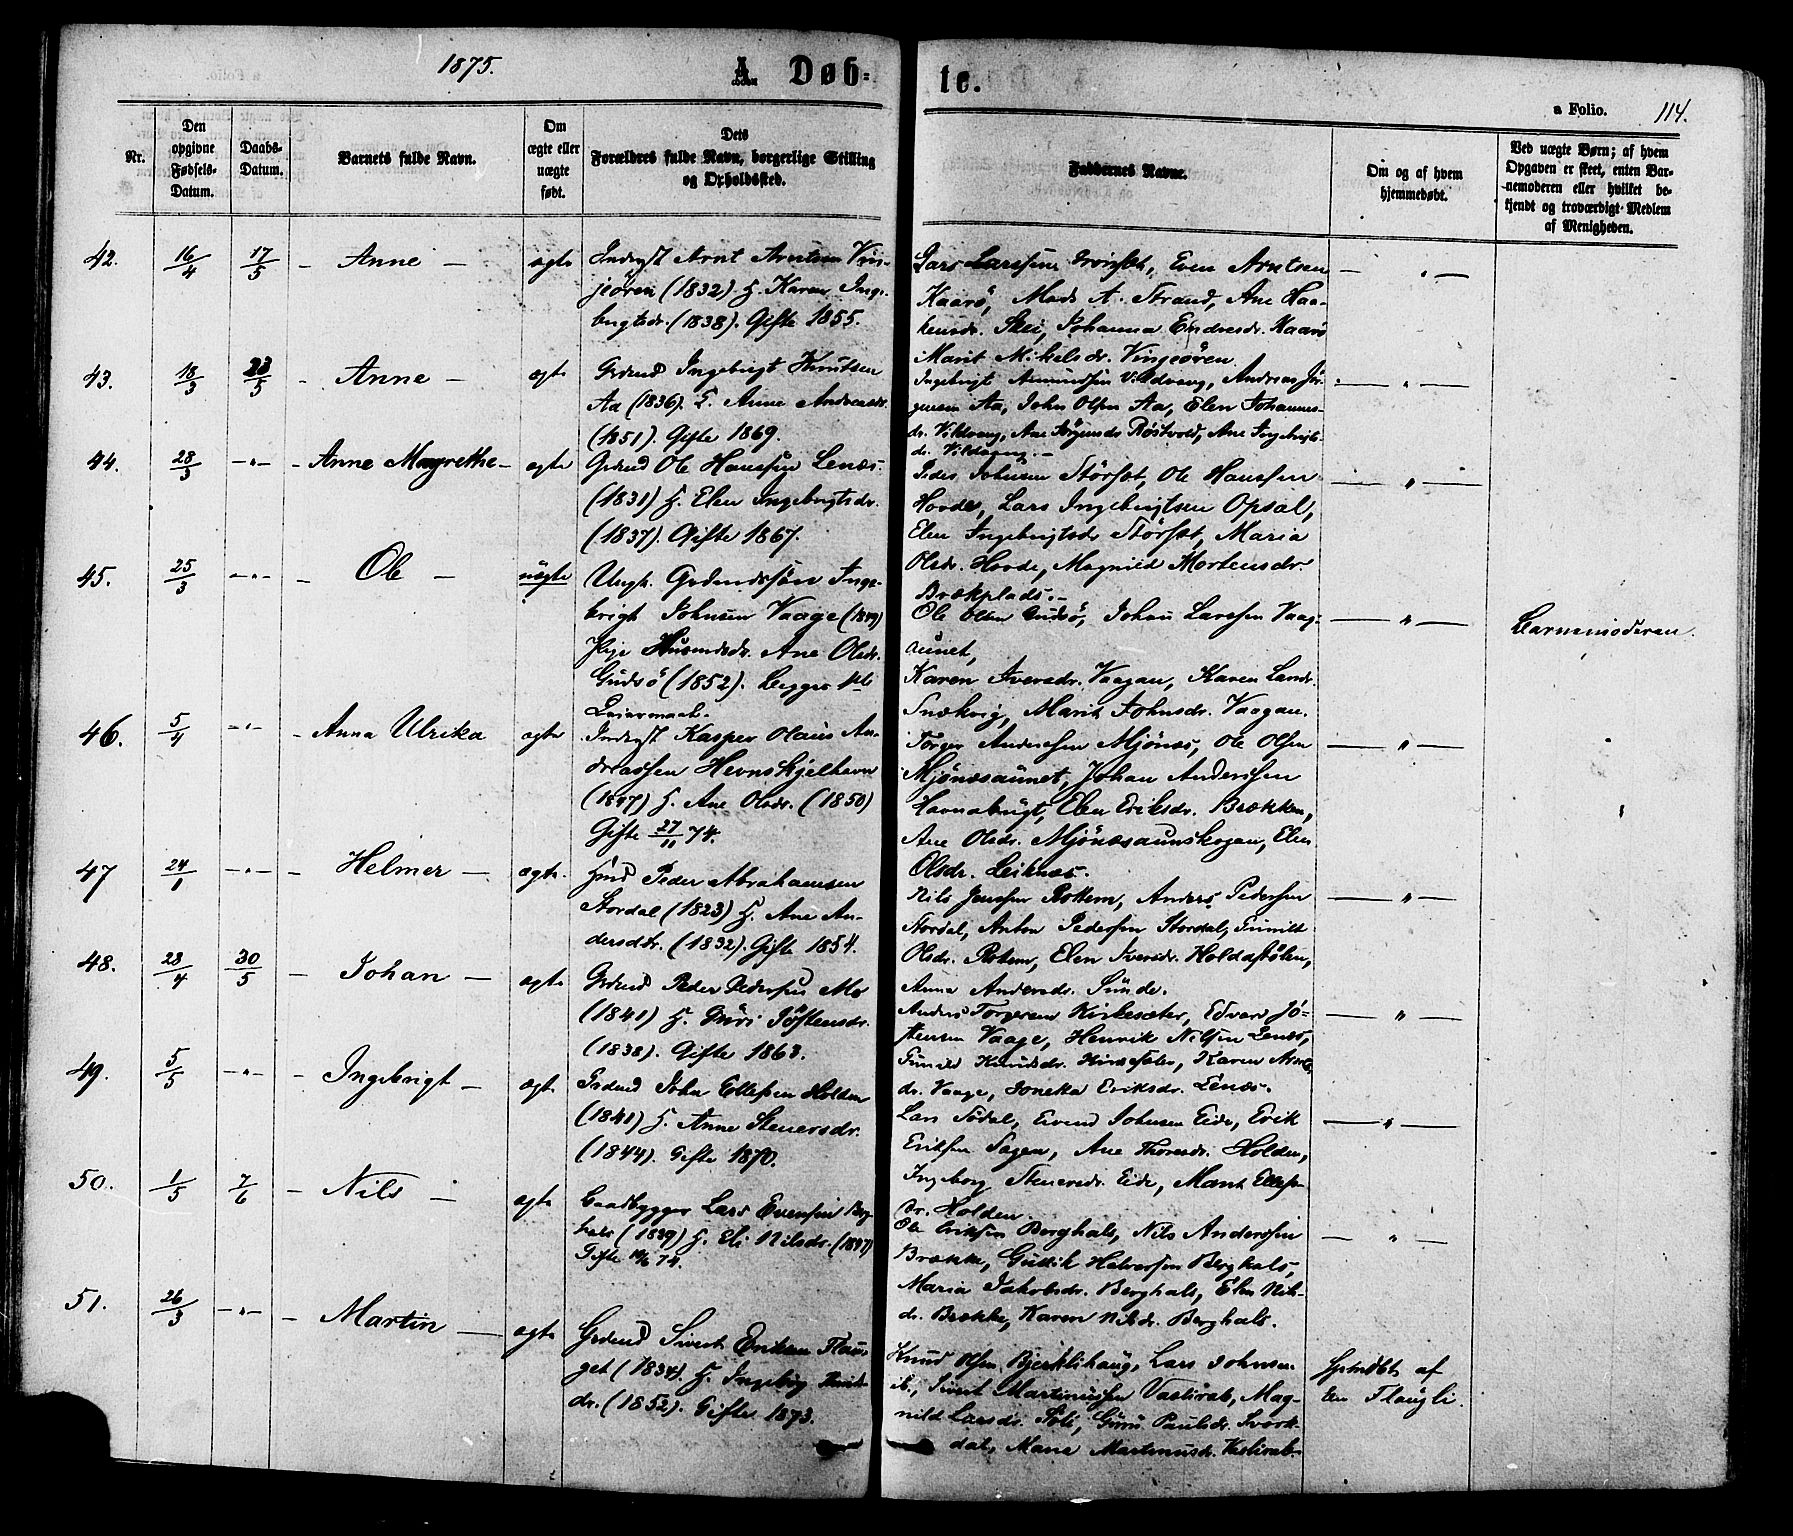 1875.
A. Døb-
te.
a Folio. 114.
Nr.
Den opgivne Fødsels-Datum.
Daabs-Datum.
Barnets fulde Navn.
Om ægte eller uægte født.
Dets Forældres fulde Navn, borgerlige Stilling og Opholdssted.
Faddernes Navne.
Om og af hvem hjemmedøbt.
Ved uægte Børn; af hvem Opgaven er skeet, enten Barnemoderen eller hvilket bekjendt og troværdigt Medlem af Menigheden.
42. 16/4 17/5 - Anne - ægte
Inderst Arnt Arntsen Vin-
jeören (1832) H. Karen Inge-
brigtsdr. (1838). Gifte 1855.
Lars Larssen, Even Arntsen
Kaarö, Mads A. Strand, Ane Haa-
kensdr. Skei, Johanna Endresdr. Kaarö
Marit Mikelsdr. Vingeören
— " —
43. 18/3 23/5 - Anne - ægte
Grdmd Ingebrigt Knutsen
Aa (1836). H. Anne Andreasdr.
(1851). Gifte 1869.
Ingebrigt Amundsen Vildvang, Andreas Jör-
gensen Aa, John Olsen Aa, Elen Johannes-
dr. Vildvang, Ane Jörgensdr Röstvold, Ane Ingebrigts-
dr. Vildvang.-
— " —
44. 28/3 -"- - Anne Magrethe - ægte
Grdmd Ole Hanssen Lenæs.
(1831) H. Elen Ingebrigtsdr.
(1837). Gifte 1867.
Peder Johnsen Störset, Ole Hanssen
Hovde, Lars Ingebrigtsen Opsal,
Elen Ingebrigtsdr Störset, Maria
Olsdr. Hovde, Magnild Mortensdr.
Brækplads.-
— " —
45. 25/3 -"- - Ole - uægte
Ungk. Grdmdssön Inge-
brigt Johnsen Vaage (1849)
Pige Husmdsdr. Ane Olsdr.
Gudsö (1852). Begges 1ste
Leiermaal.
Ole Olsen Gudsö, Johan Larssen Vaag-
aunet,
Karen Iversdr. Vaagan, Karen Larsdr.
Snekvig, Marit Johnsdr. Vaagan.
— " —
Barnemoderen.
46. 5/4 -"- - Anna Ulrika ægte
Inderst Kasper Olaus An-
dreassen Hevnskjelhavn
(1847) H. Ane Olsdr. (1850)
Gifte 27/11 74.
Torger Anderssen Mjönæs, Ole Olsen
Mjönæsaunet, Johan Anderssen
Havnabugt, Elen Eriksdr. Brækken,
Ane Olsdr. Mjönæsaunskogen, Elen
Olsdr. Leiknæs.
— " —
47 24/1 -"- - Helmer - ægte.
Hmd Peder Abrahamsen
Stordal (1823) H. Ane An-
dersdtr. (1832). Gifte 1854.
Nils Jenssen Rottem, Anders Pedersen
Stordal, Anton Pedersen Stordal, Gunild
Olsdr. Rottem, Elen Iversdr. Holdastölen,
Anna Andersdr. Sunde.
— " —
48. 23/4 30/5 - Johan - ægte
Grdmd Peder Pedersen Mo
(1841) H. Guri Jöstensdr.
(1838). Gifte 1863.
Anders Torgersen Kirkesæter, Edvard Jö-
stensen Vaage, Henrik Nilsen Lenæs,
Gunild Knudsdr. Kirkesæter, Karen Arnts
dr. Vaage, Joneka Eriksdr. Lenæs.
— " —
49. 5/5 -"- - Ingebrigt - ægte
Grdmd John Ellefsen Holden
(1841) H. Anne Steuersdr.
(1844). Gifte 1870.
Lars Södal, Eivind Johnsen Eide, Erik
Eriksen Sagen, Ane Thoresdr. Holden,
Ingeborg Steneresdr. Eide, Marit Ellefs-
dr. Holden.
— " —
50. 1/5 7/6 - Nils - ægte
Baadbygger Lars Evensen Berg-
hals (1839) H. Eli Nilsdr. (1847)
Gifte 74.
Ole Eriksen Berghals, Nils Anderssen
Brække, Gullik Halvorsen Berghals,
Maria Jakobsdr. Berghals, Elen Nils-
dr. Brække, Karen Nilsdr. Berghals.
— " —
51. 26/3 -"- - Martin — ægte
Grdmd Sivert Eriksen Flau-
get (1834). H. Ingebrig
dr. (1852). Gifte 1873.
Knud Olsen Bjerklihaug, Lars Johnsen
ib., Sivert Martinussen Vaslirab, Mag-
nild Larsdr. Soli, Guru Paulsdr. Svörk-
dal, Marie Martinusdr. Vaslirab-
Hjemdöbt af
Flaugli.